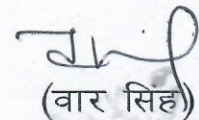 (वार सिंह)